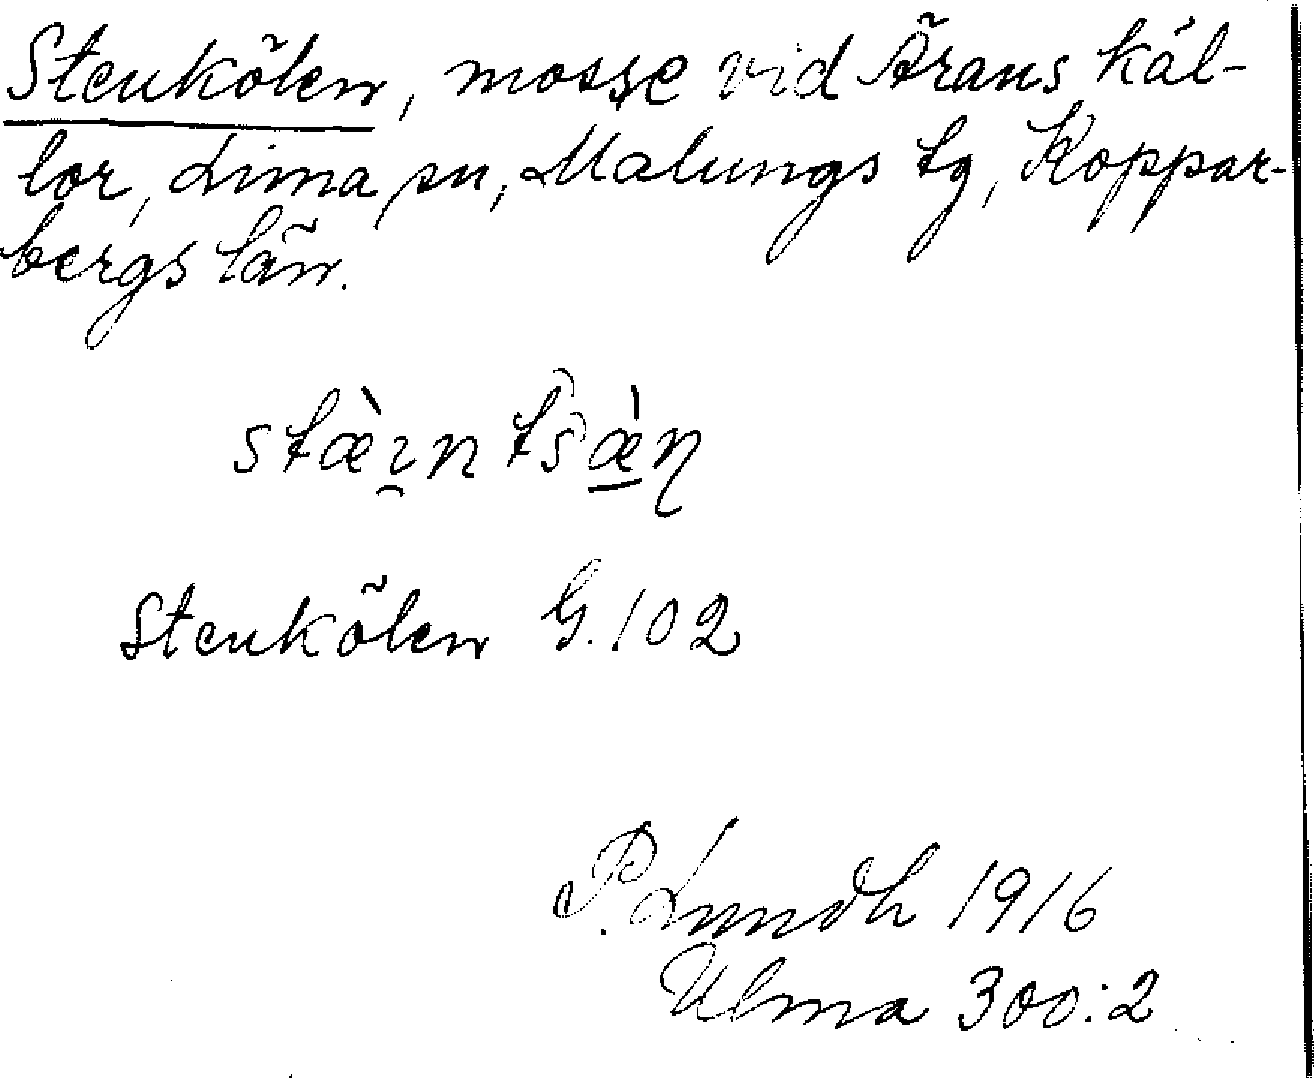 Stenkölen, mosse vid Ärans käl-
lor, Lima sn, Malungs tg, Koppar-
bergs län.
stæ̀ı̯n tsæ̀ɳ
Stenkölen G. 102
P. Lundh 1916
Ulma 300:2